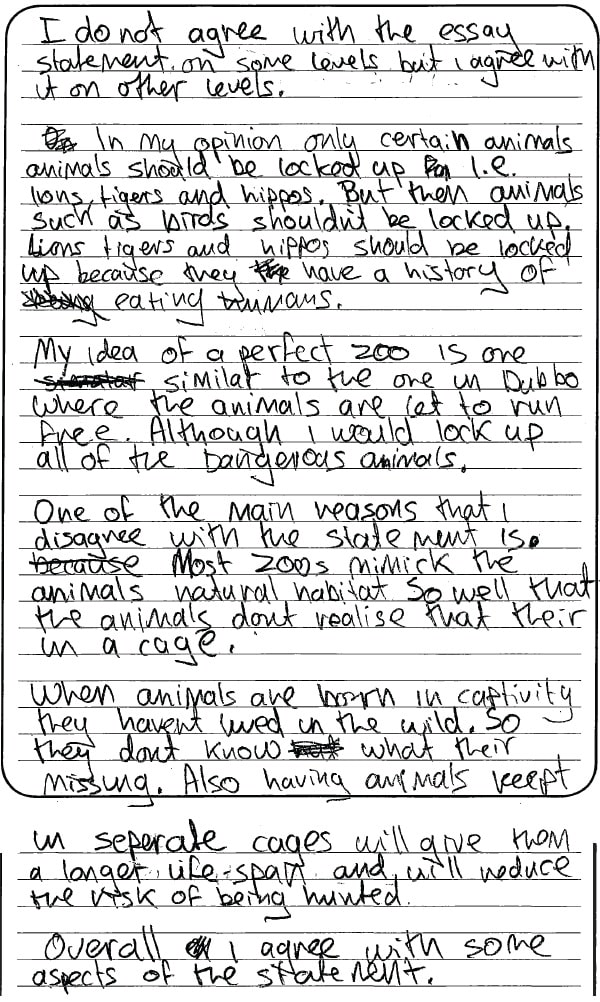 I do not agree with the essay
statement. on some levels but i agree with
it on other levels.
In my opinion only certain animals
animals should be locked up i.e.
lions, tigers and hippos. But then animals
such as birds shouldn't be locked up.
Lions tigers and hippos should be locked
up because they have a history of
eating humans.
My idea of a perfect zoo is one
similar to the one in Dubbo
where the animals are let to run
free. Although I would lock up
all of the Dangerous animals.
One of the main reasons that I
disagree with the statement is.
because Most zoos mimick the
animals natural habitat So well that
the animals dont realise that their
in a cage.
When animals are born in captivity
they havent lived in the wild. So
they dont know what their
missing. Also having animals keept
in seperate cages will give them
a longer life-span and will reduce
the risk of being hunted.
Overall I agree with some
aspects of the statement.